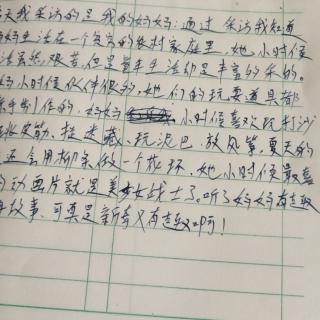 天我采访的是我的妈妈:通过采访我知道
妈生活在一个贫穷的农村家庭里,她小时候
活虽然艰苦,但是童年生活却是丰富多采的。
妈小时候伙伴很多,她们的玩耍道具都
手制作的,妈妈小时候喜欢玩打沙
跳皮筋、捉迷藏、玩泥巴、放风筝,夏天的
还会用柳条做一个花环,她小时候最喜
的动画片就是美少女战士了。听了妈妈有趣
年故事,可真是新奇又有趣啊!